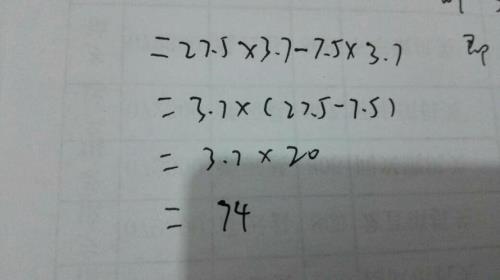 =27.5×3.7-7.5×3.7
=3.7×(27.5-7.5)
=3.7×20
=74